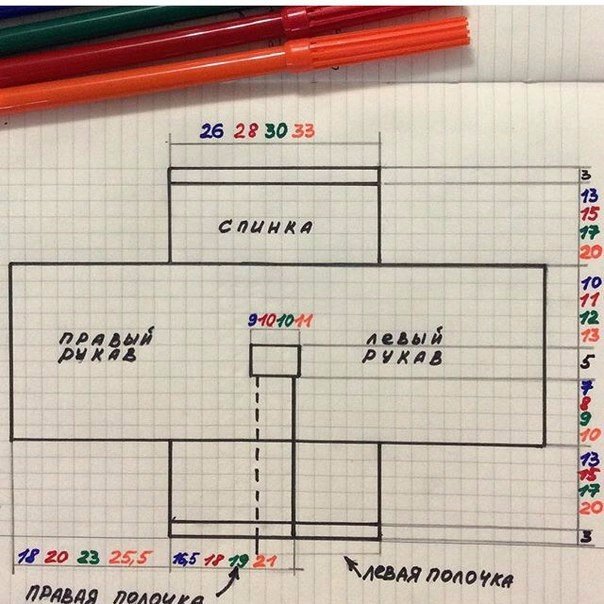 26 28 30 33
3
13
15
17
20
СПИНКА
10
11
12
13
9 10 10 11
ПРАВЫЙ
РУКАВ
ЛЕВЫЙ
РУКАВ
5
7
8
9
10
13
15
17
20
3
18 20 23 25,5
16,5 18 19 21
ПРАВАЯ ПОЛОЧКА
ЛЕВАЯ ПОЛОЧКА